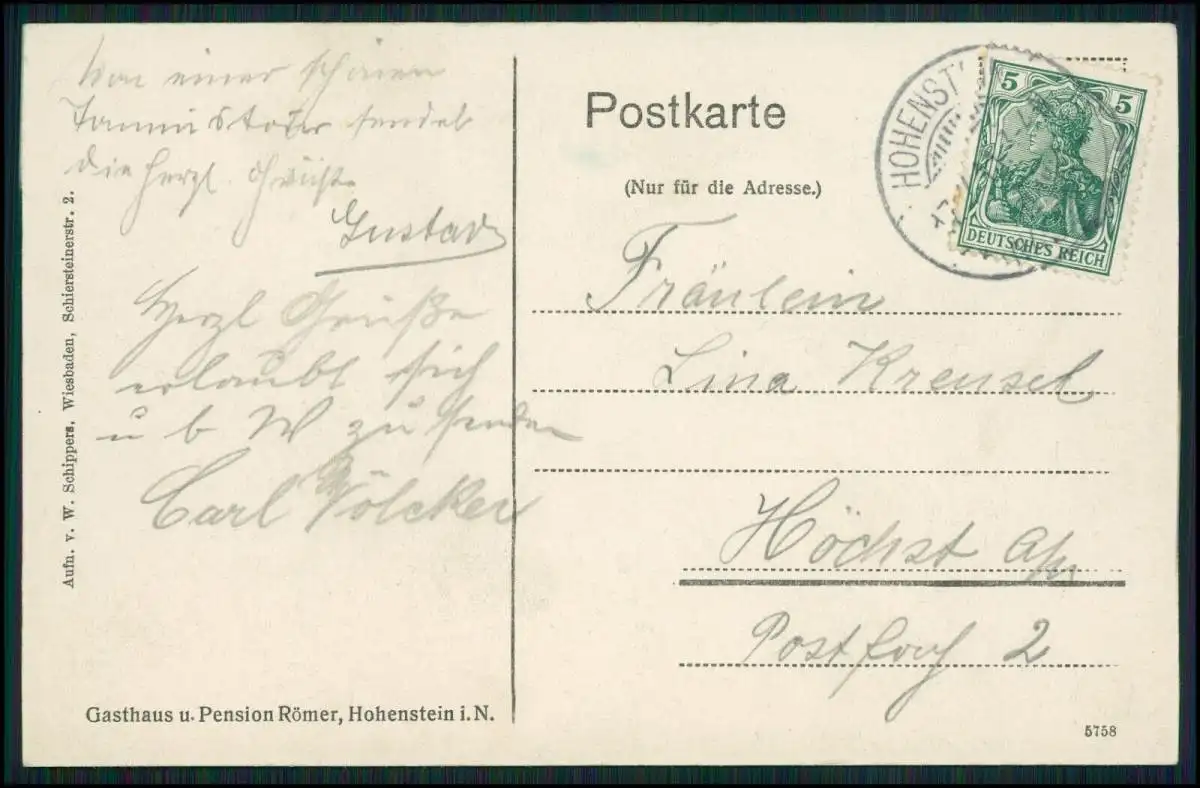 Von einer schönen
Taunustour sendet
die herzl. Grüße
Gustav
Herzl Grüße
erlaubt sich
u b W zu senden
Carl Völcker
Aufn. v. W. Schippers, Wiesbaden, Schiersteinerstr. 2.
Gasthaus u. Pension Römer, Hohenstein i. N.
Postkarte
(Nur für die Adresse.)
HOHENST
5 5
DEUTSCHES REICH
Fräulein
Lina Kreusel
Höchst a/m
Postfach 2
5758